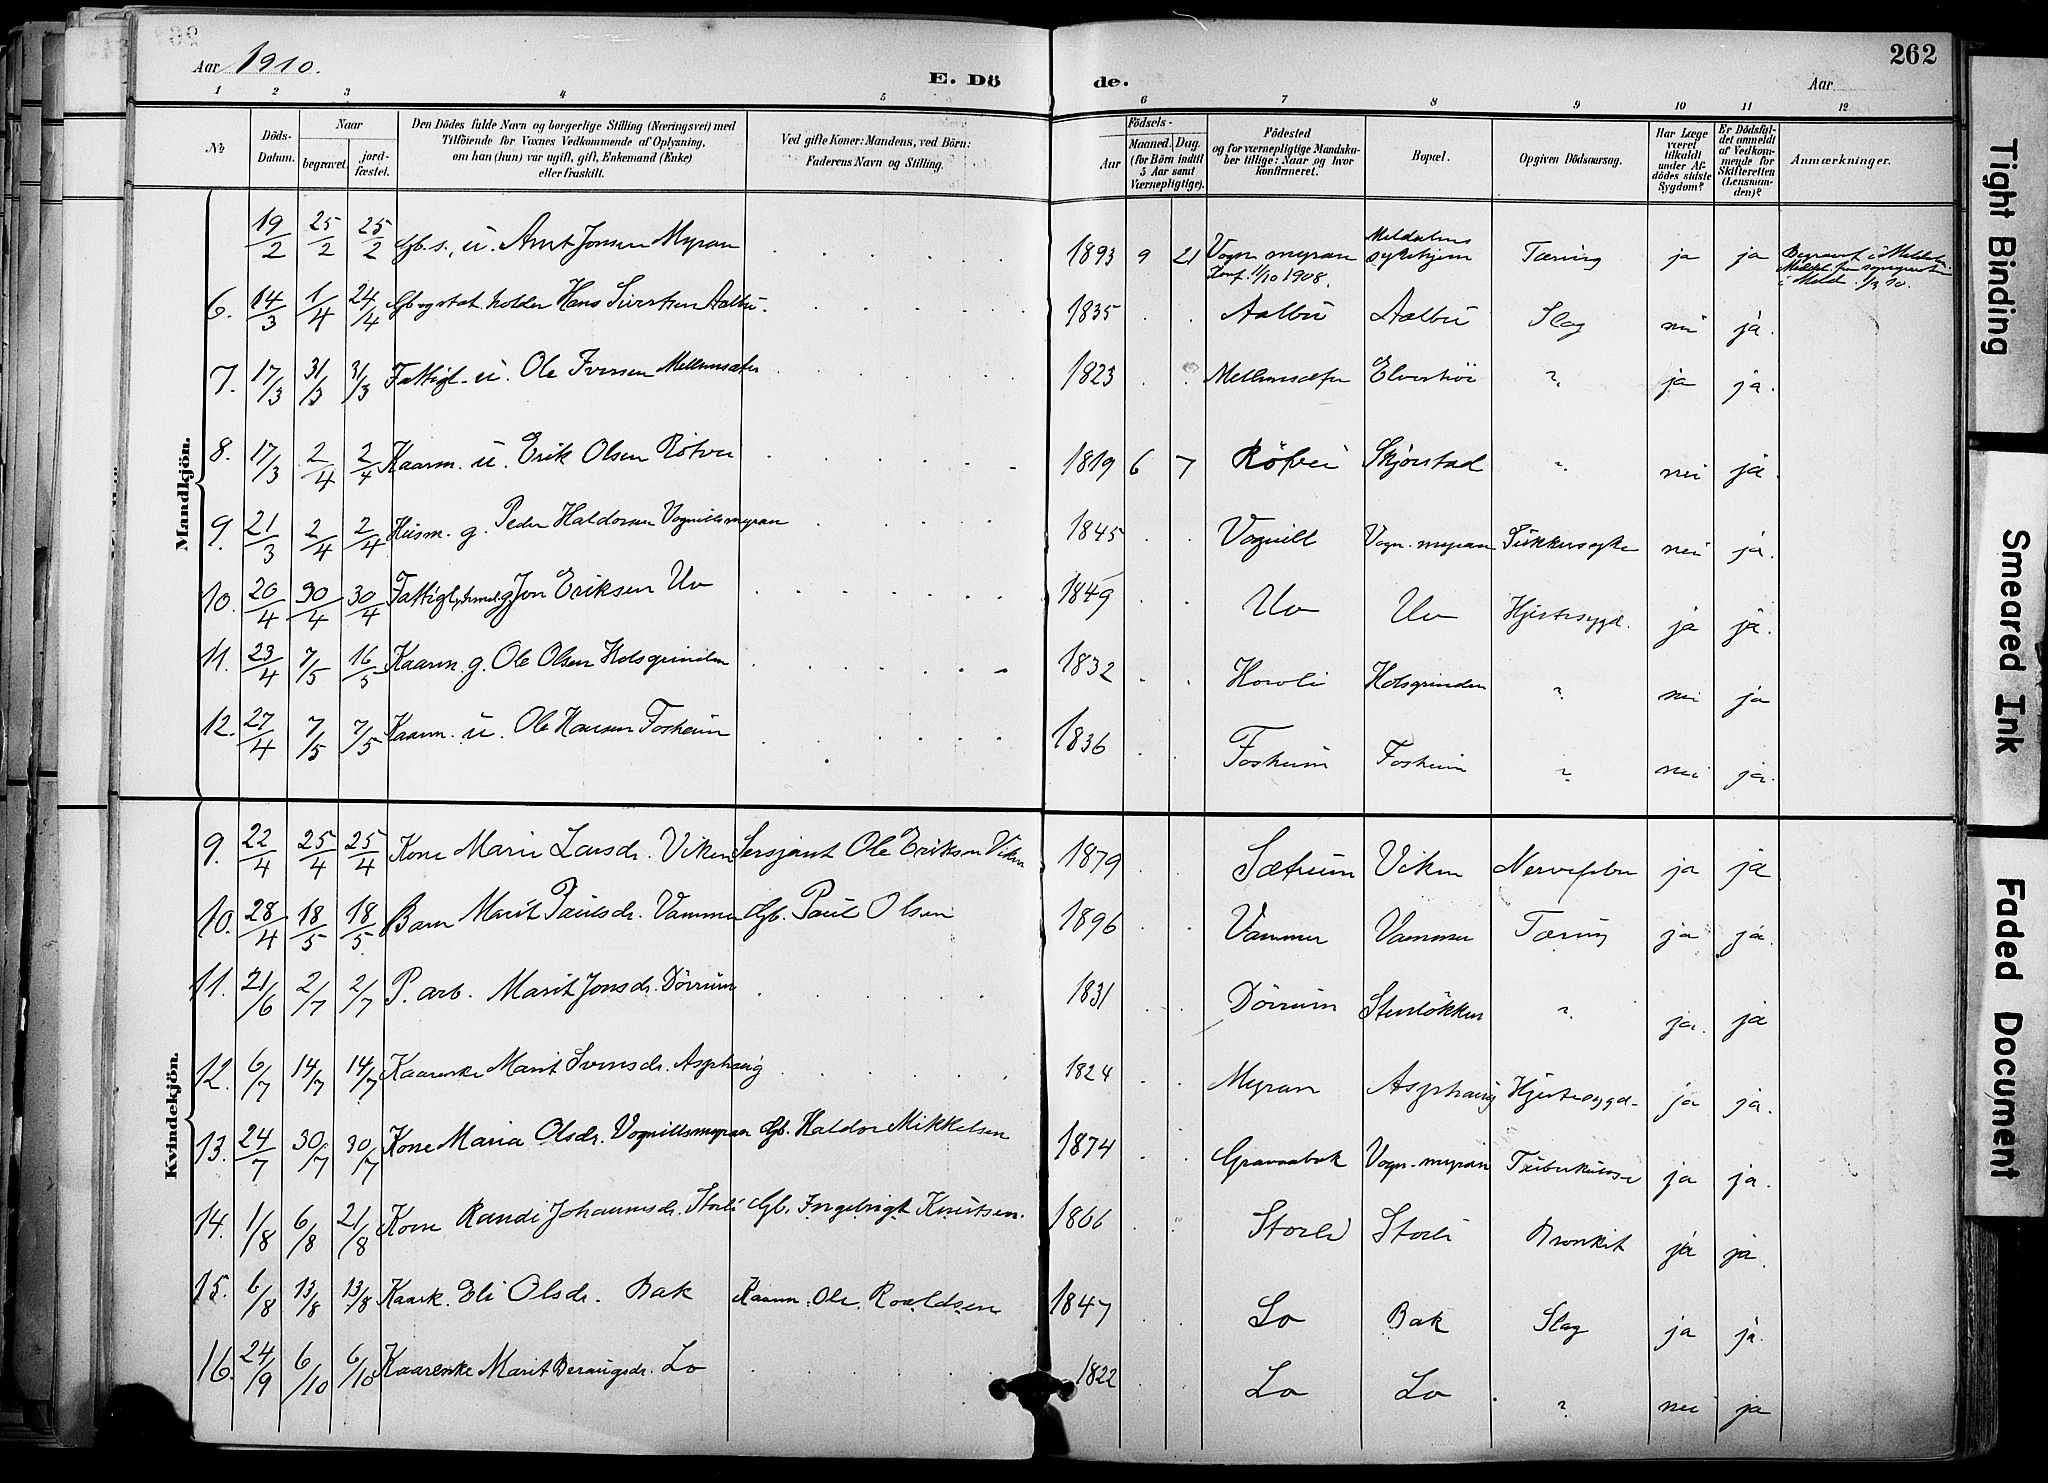 262
Aar 1910.
E. Dö de.
Aar
1 2 3 4 5 6 7 8 9 10 11 12
№
Döds-Datum.
Naar
begravet.
jord-fæstet.
Den Dödes fulde Navn og borgerlige Stilling (Næringsvei) med
Tilföiende for Voxnes Vedkommende af Oplysning,
om han (hun) var ugift, gift, Enkemand (Enke)
eller fraskilt.
Ved gifte Koner: Mandens, ved Börn:
Faderens Navn og Stilling.
Födsels-
Aar
Maaned. Dag.
(for Börn indtil
5 Aar samt
Værnepligtige).
Födested
og for værnepligtige Mandska-
ber tillige: Naar og hvor
konfirmeret.
Bopæl.
Opgiven Dödsaarsag.
Har Læge
været
tilkaldt
under Af-
dödes sidste
Sygdom?
Er Dödsfal-
det anmeldt
af Vedkom-
mende for
Skifteretten
(Lensman-
den)?
Anmærkninger.
Mandkjön.
19/2 25/2 25/2 Gb.s., u. Arnt Jonsen Myran 1893 9 21 Vogn. myran Konf. 11/10 1908. Meldalens sykehjem Tæring ja ja Begravet i Meldal
6. 14/3 1/4 24/4 Hans Sivertsen Aalbu. 1835 Aalbu Aalbu Slag nei ja.
7. 17/3 31/3 31/3 Fattigl. u. Ole Iversen Mellemsæter 1823 Mellemsæter " ja ja.
8. 17/3 2/4 2/4 Kaarm. u. Erik Olsen Rötvei 1819 6 7 Rötvei Skjörstad " nei ja
9. 21/3 2/4 2/4 Husm. g. Peder Haldorsen Vognillsmyran 1845 Vognill Vogn. myran Sukkersyke nei ja.
10. 20/4 30/4 30/4 Fattigl. Jon Eriksen Uv 1849 Uv Uv Hjertesygd. ja ja.
11. 23/4 7/5 16/5 Kaarm. g. Ole Olsen Holsgrinden 1832 Horoli Holsgrinden " nei ja
12. 27/4 7/5 7/5 Kaarm. u. Ole Hansen Fosheim 1836 Fosheim Fosheim " nei ja.
Kvindekjön.
9. 22/4 25/4 25/4 Kone Marie Larsdr. Viken Sersjant Ole Eriksen Viken 1879 Sætrum Viken Nervefeber ja ja
10. 28/4 18/5 18/5 Barn Marit Paulsdr. Vammer Gb. Paul Olsen 1896 Vammer Vammer Tæring ja ja.
11. 21/6 2/7 2/7 P. arb. Marit Jonsdr. Dörrum 1831 Dörrum Stenlökken " ja. ja
12. 6/7 14/7 14/7 Kaarenke Marit Svensdr. Asphaug 1824 Myran Asphaug Hjertesygd. ja ja.
13. 24/7 30/7 30/7 Kone Maria Olsdr. Vognillsmyran Gb. Haldor Mikkelsen 1874 Gravaabak Vogn. myran Tuberkulose ja ja.
14. 1/8 6/8 21/8 Kone Randi Johannesdr. Storli Gb. Ingebrigt Knutsen. 1866 Storli Storli Bronkit ja ja.
15. 6/8 13/8 13/8 Kaark. Eli Olsdr. Bak Kaarm. Ole Roaldsen 1847 Lo Bak Slag ja ja.
16. 24/9 6/10 6/10 Kaarenke Marit Beraugsdr. Lo 1822 Lo Lo " nei ja
Tight Binding
Smeared Ink
Faded Document